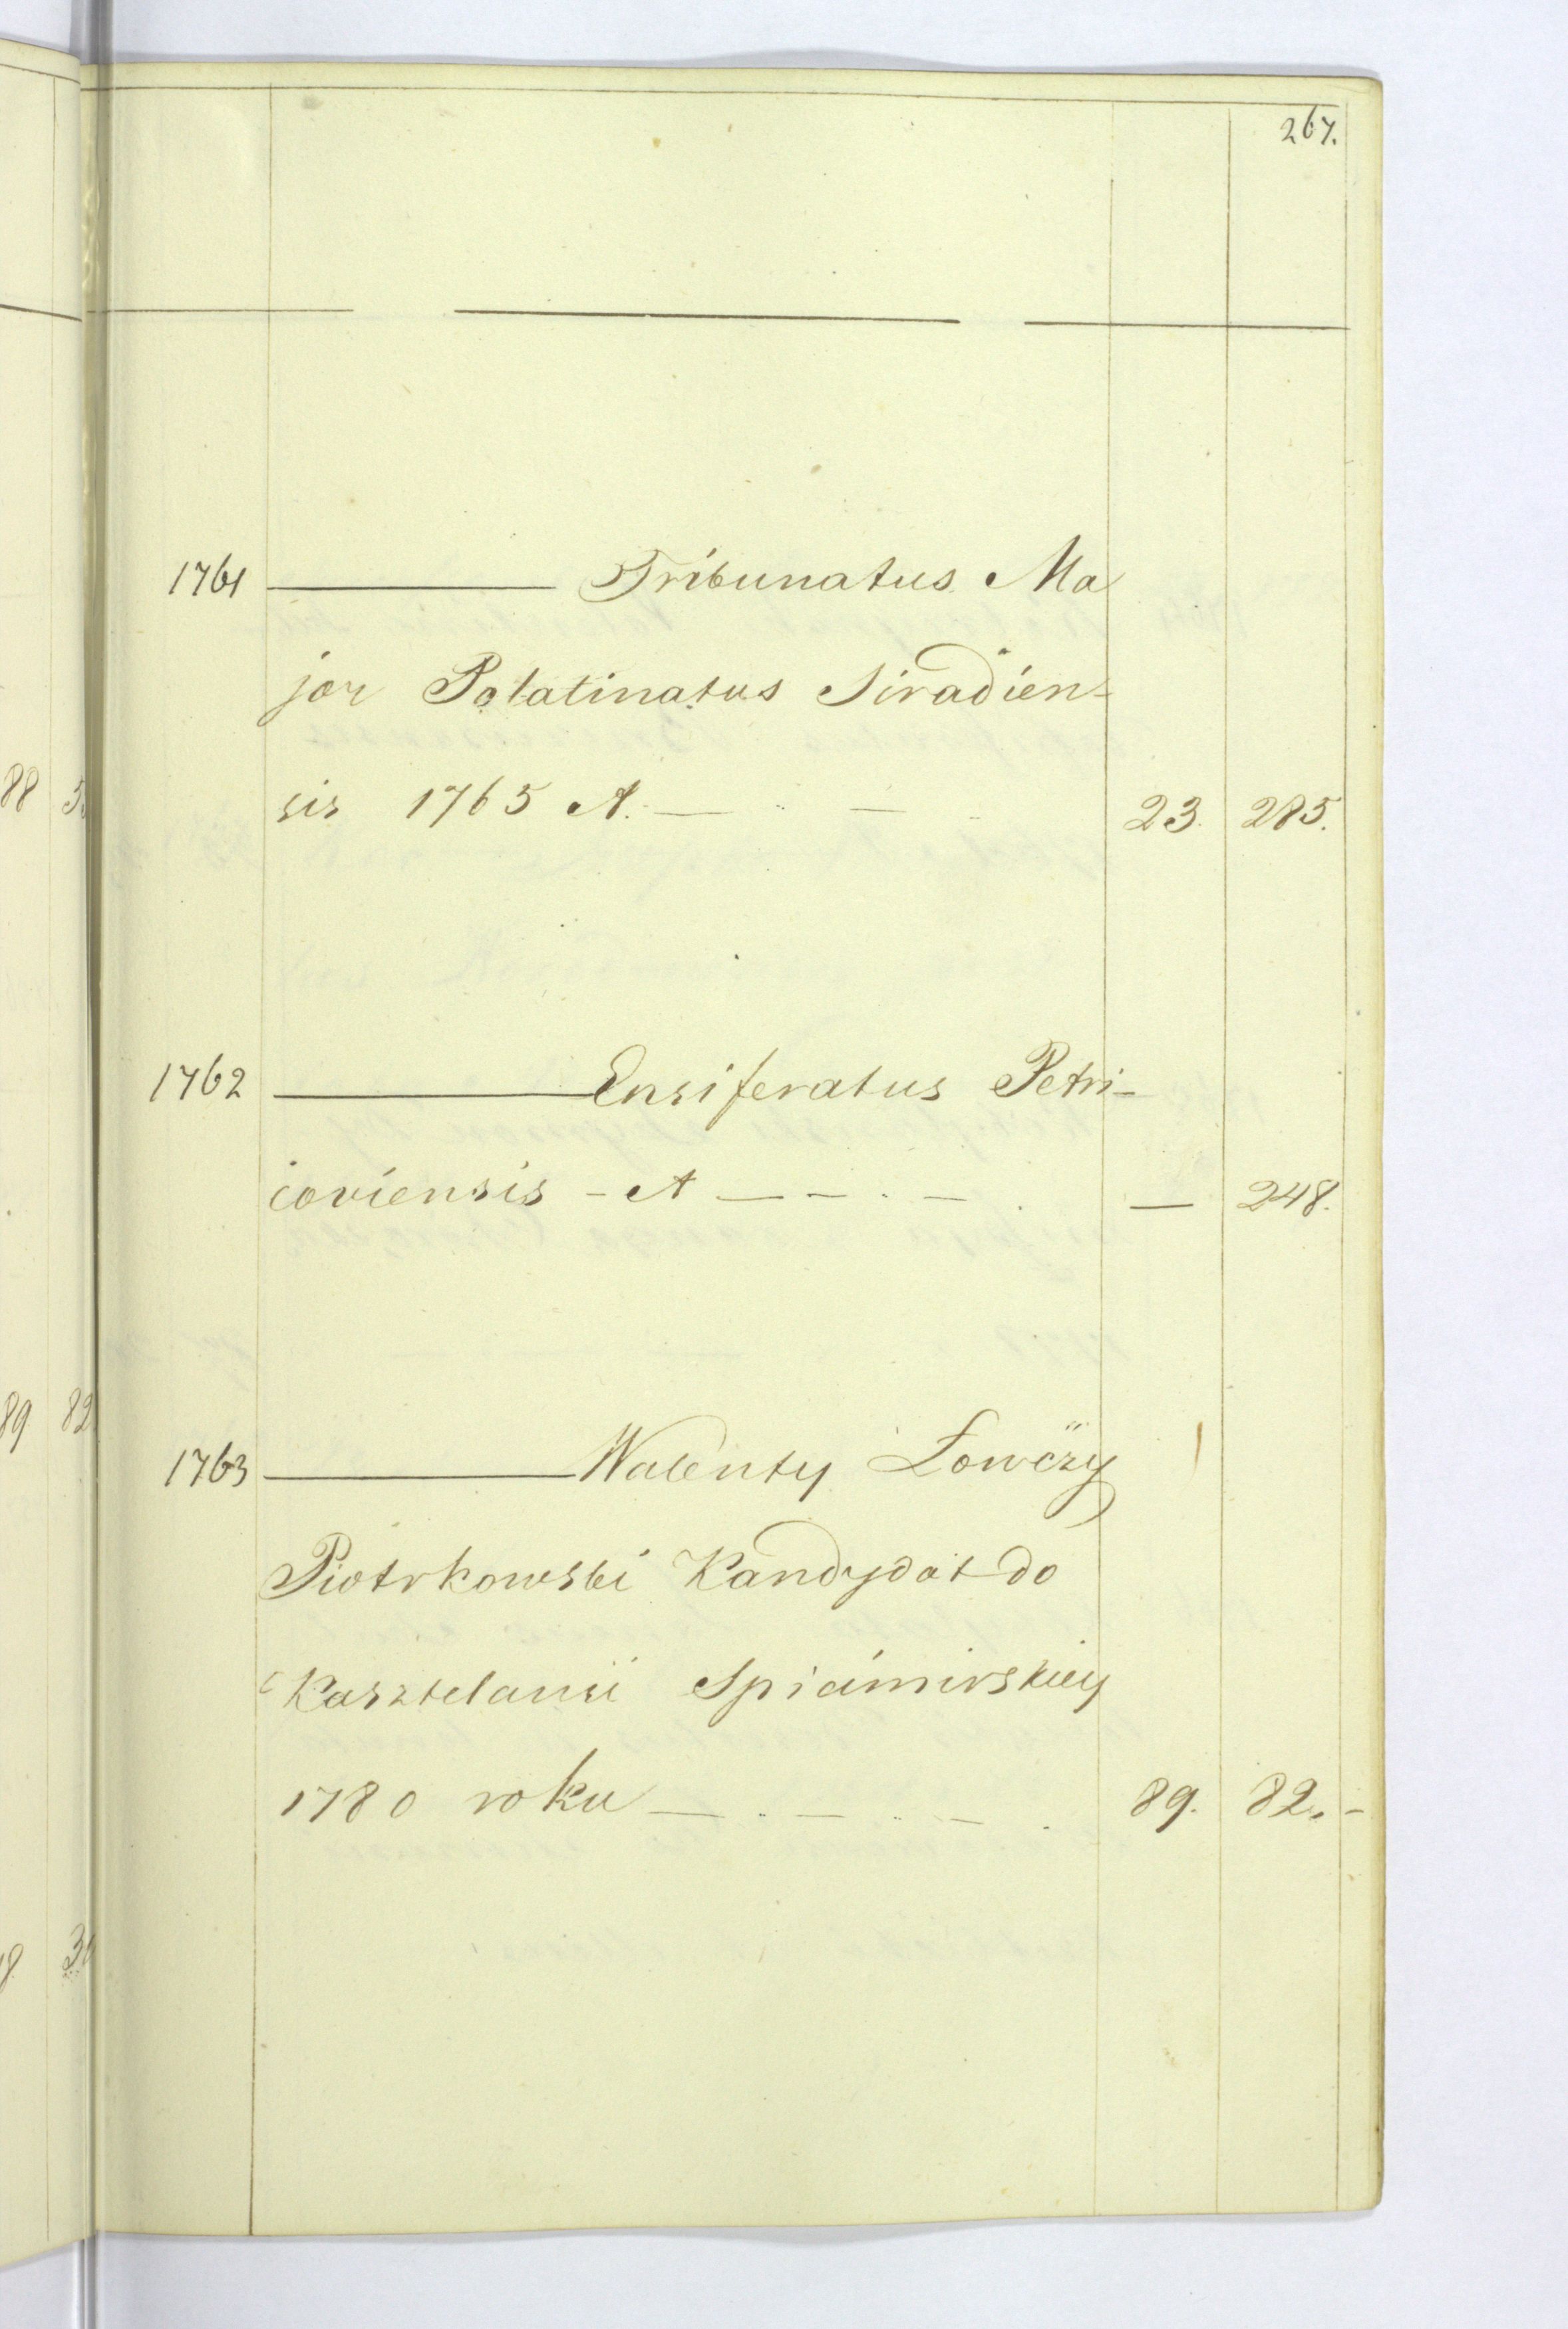 267.
1761 ——— Tribunatus Ma
jor Palatinatus Siradien-
sis 1765 A. — — 23. 285.
1762 ——— Ensiferatus Petri-
coviensis - A — - . — — 248.
1763 ——— Walenty Łowczy
Piotrkowski Kandydat do
Kasztelanii Spicimirskiey
1780 roku — . — . — . 89. 82. -
88
89 82